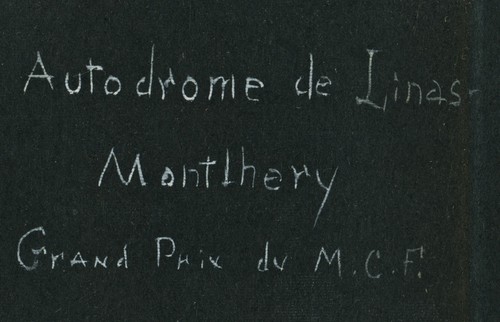 Autodrome de Linas-
Montlhery
Grand Prix du M.C.F.